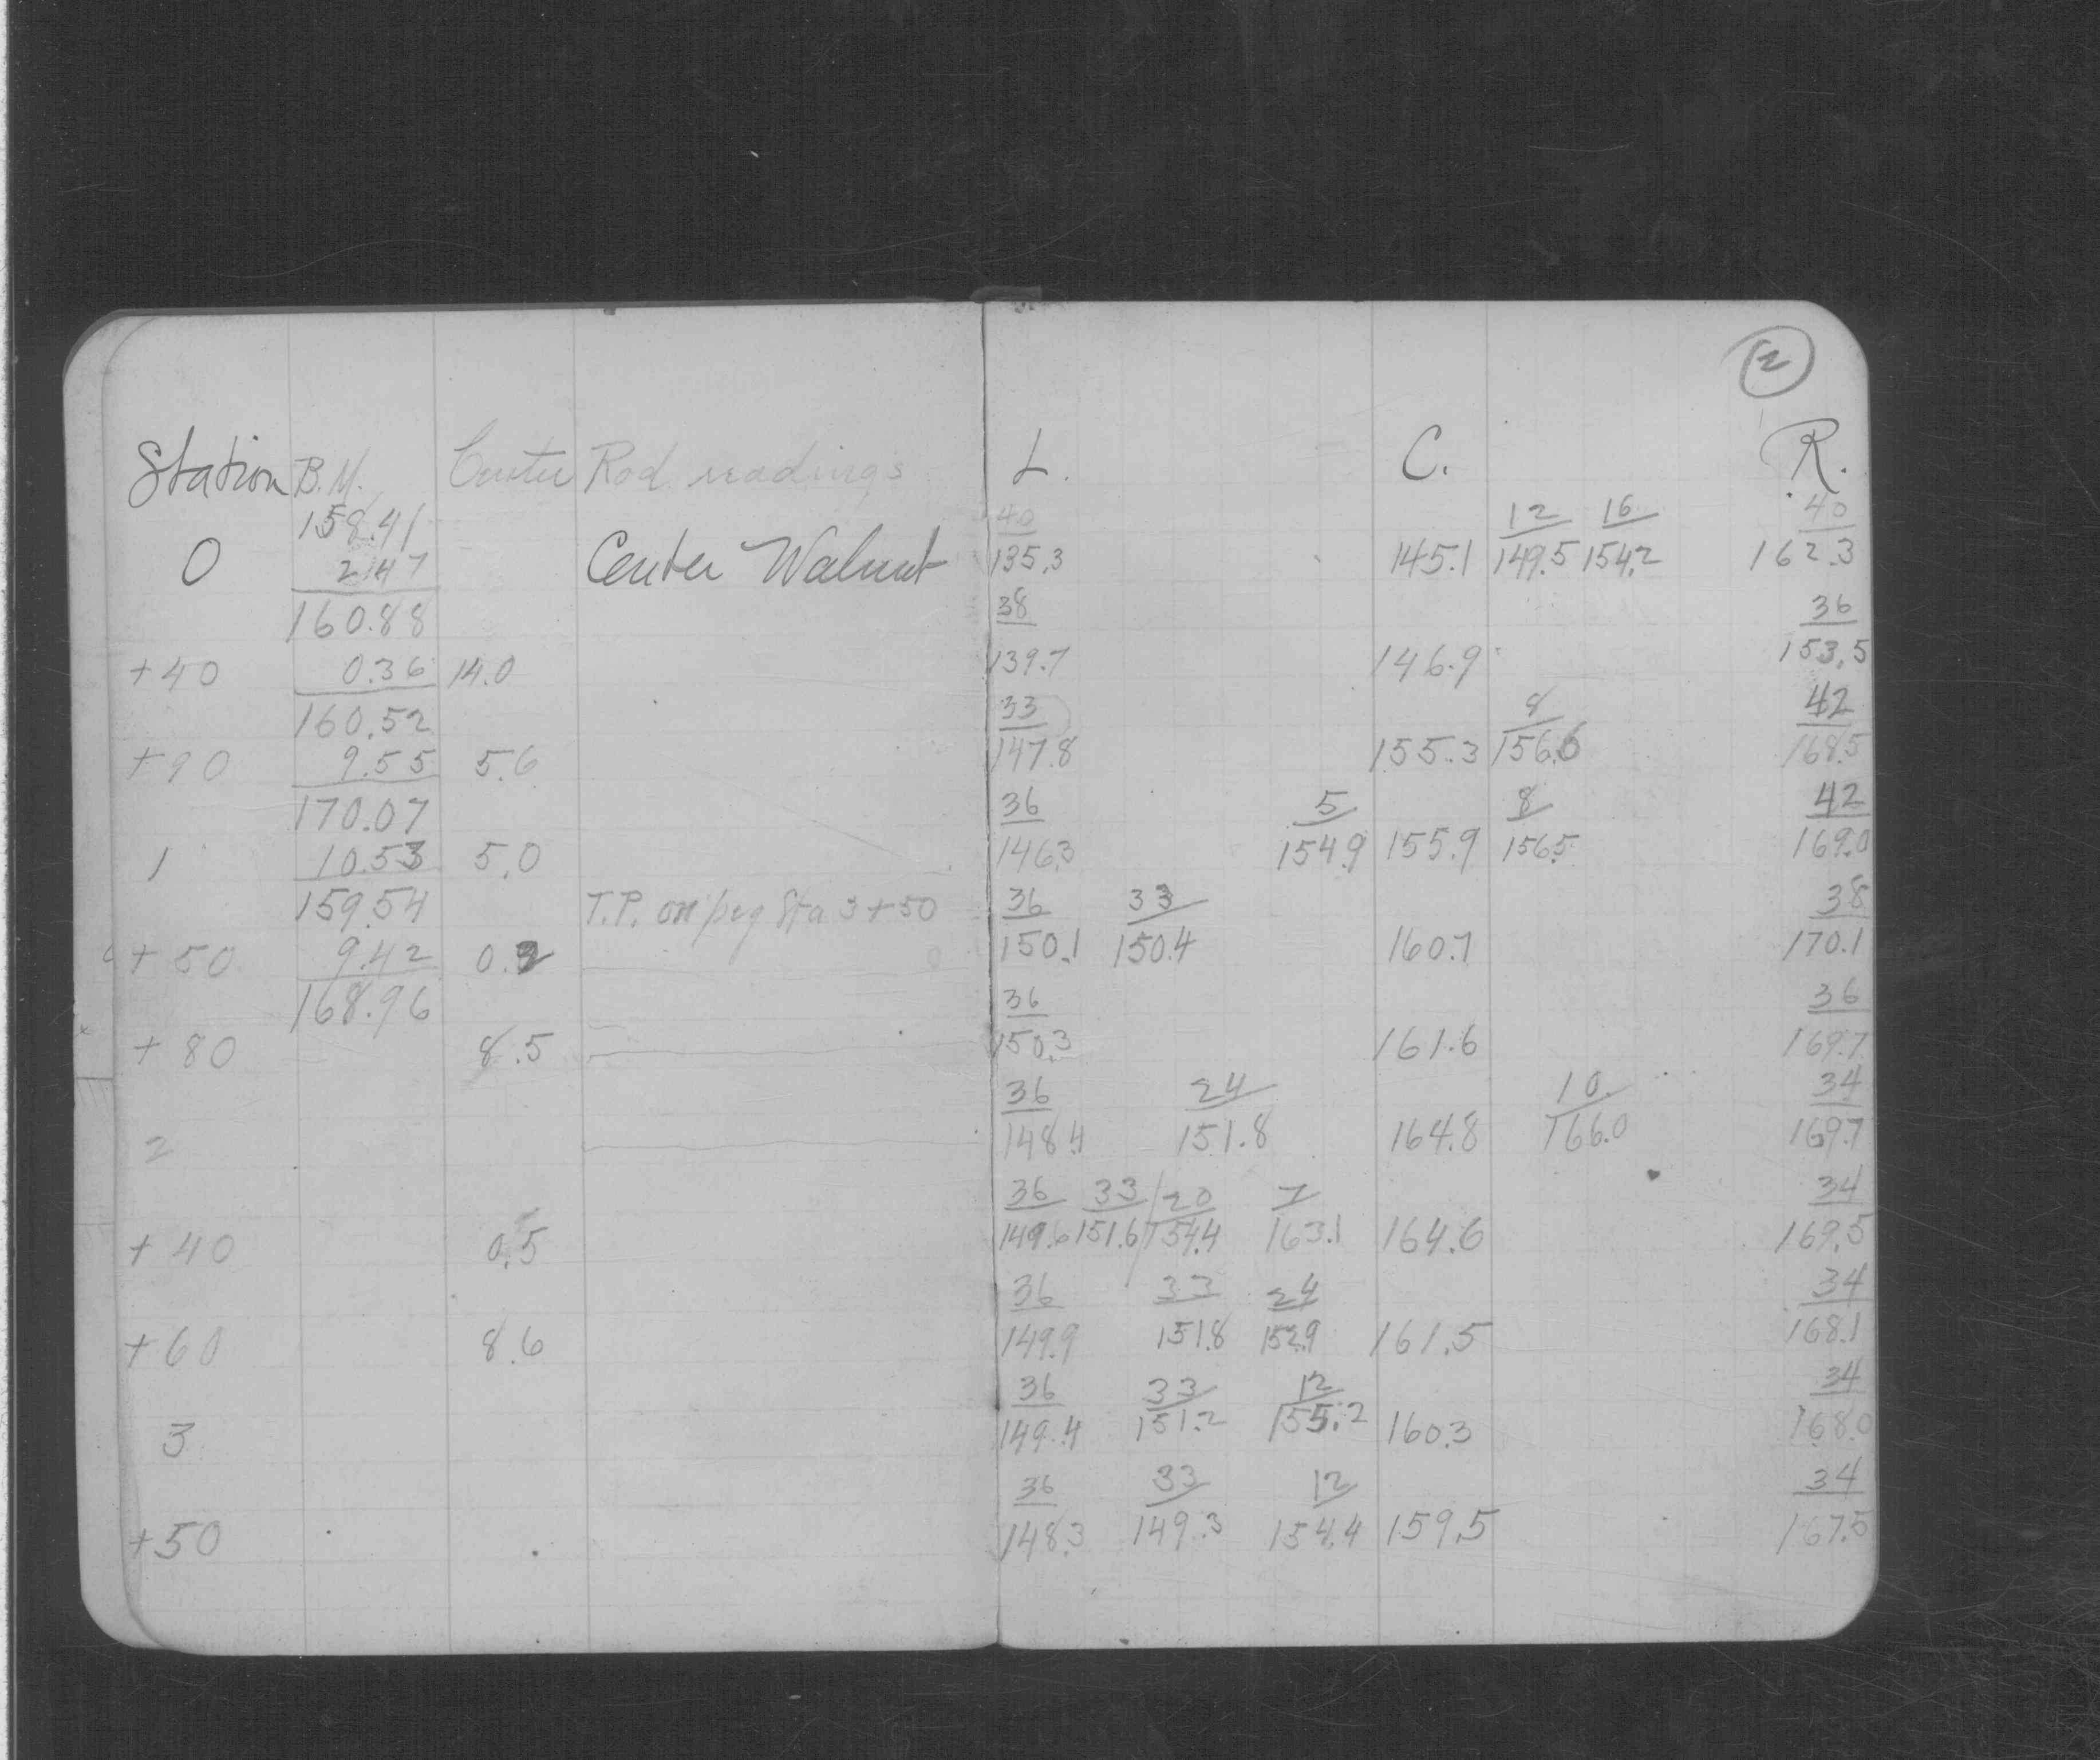 2
Station B.M. Center Rod readings L. C. R.
158.41 40 12 16 40
0 2.47 Center Walnut 135.3 145.1 149.5 154.2 162.3
160.88 38 36
+40 0.36 14.0 139.7 146.9 153.5
160.52 33 8 42
+90 9.55 5.6 147.8 155.3 156.6 168.5
170.07 36 5 8 42
1 10.53 5.0 146.3 154.9 155.9 156.5 169.0
159.54 T.P. on peg Sta 3+50 36 33 38
+50 9.42 150.1 150.4 160.7 170.1
168.96 36 36
+80 8.5 150.3 161.6 169.7
36 24 10 34
2 148.4 151.8 164.8 166.0 169.7
36 33 20 7 34
+40 0.5 149.6 151.6 154.4 163.1 164.6 169.5
36 33 24 34
+60 8.6 149.9 151.8 152.9 161.5 168.1
36 33 12 34
3 149.4 151.2 155.2 160.3 168.0
36 33 12 34
+50 148.3 149.3 154.4 159.5 167.5